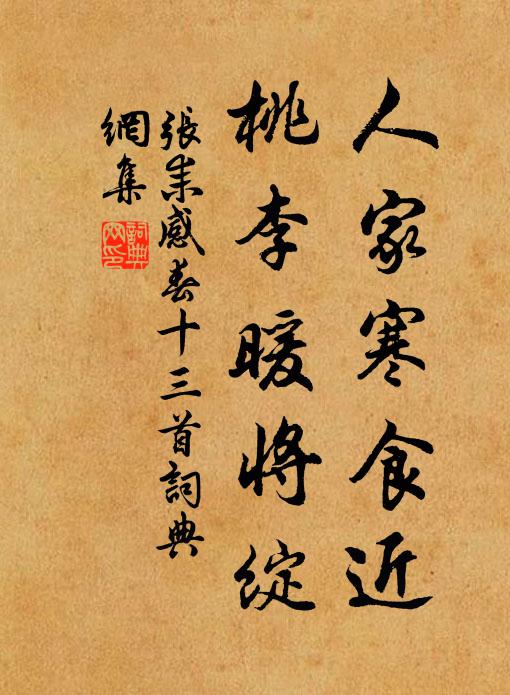 人家寒食近
桃李暖將綻
張耒感春十三首詞典
網集
詞典網印